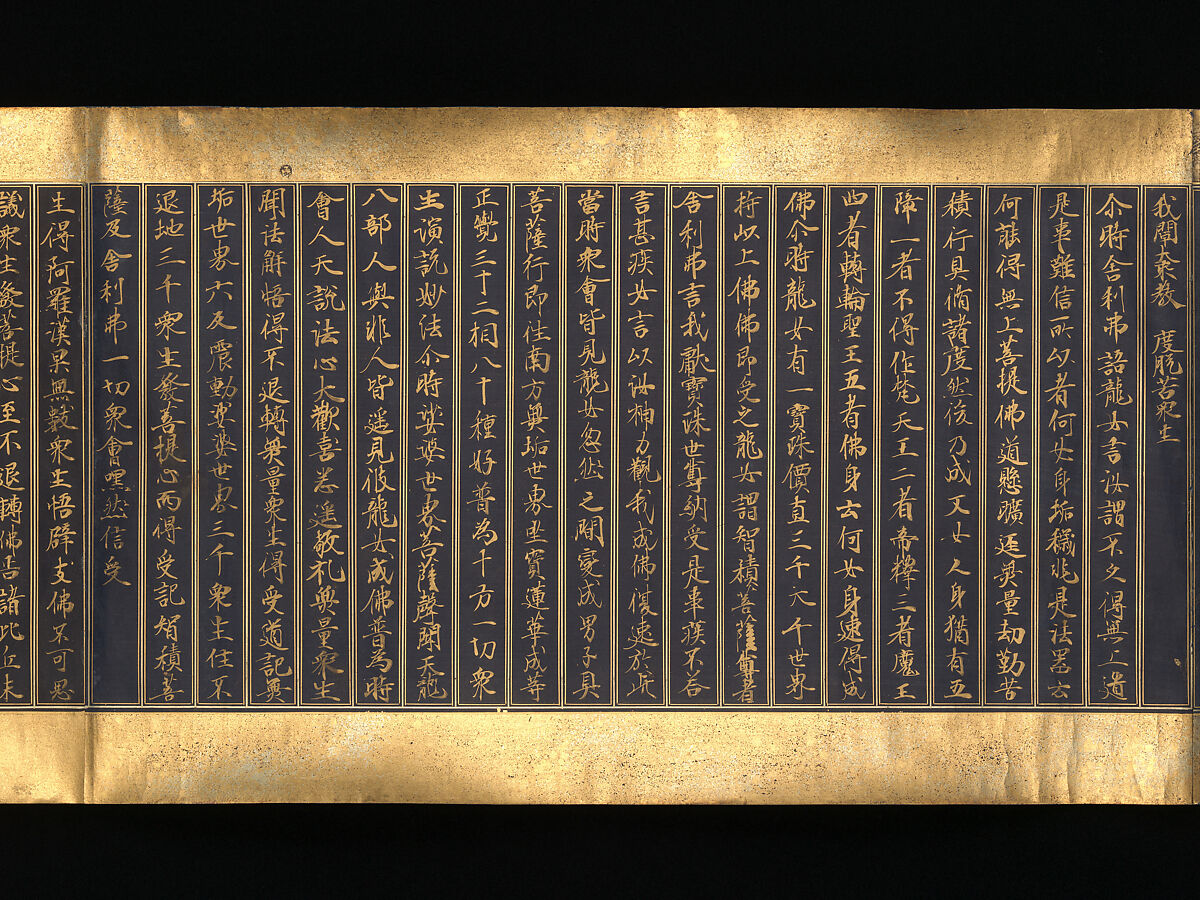 我闡乗教　度脫苦衆生
尒時舍利弗語龍女言汝謂不久得無上道
是事難信所以者何女身垢穢非是法器云
何能得無上菩提佛道懸曠逕無量劫勤苦
積行具脩諸度然後乃成又女人身猶有五
障一者不得作梵天王二者帝釋三者魔王
四者轉輪聖王五者佛身云何女身速得成
佛尒時龍女有一寶珠價直三千大千世界
持以上佛佛即受之龍女謂智積菩薩尊者
舍利弗言我獻寶珠世尊納受是事疾不答
言甚疾女言以汝神力觀我成佛復速於此
當時衆會皆見龍女忽然之間變成男子具
菩薩行即往南方無垢世界坐寶蓮華成等
正覺三十二相八十種好普為十方一切衆
生演說妙法尒時娑婆世界菩薩聲聞天龍
八部人與非人皆遥見彼龍女成佛普為時
會人天說法心大歡喜悉遥敬礼無量衆生
聞法解悟得不退轉無量衆生得受道記無
垢世界六反震動娑婆世界三千衆生住不
退地三千衆生發菩提心而得受記智積菩
薩及舍利弗一切衆會嘿然信受
生得阿羅漢果無數衆生悟辟支佛不可思
議衆生發菩提心至不退轉佛告諸比丘未